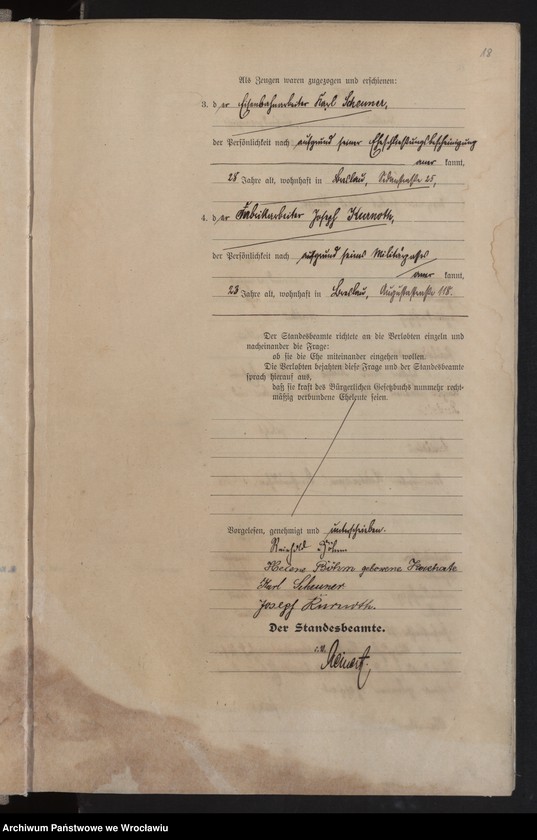 18
Als Zeugen waren zugezogen und erschienen:
3. der Eisenbahnarbeiter Karl Scheuner,
der Persönlichkeit nach aufgrund seiner Eheschließungsbescheinigung
aner kannt,
28 Jahre alt, wohnhaft in Breslau, 25,
4. der Fabrikarbeiter Joseph Kurnoth,
der Persönlichkeit nach aufgrund seines Militärpasses
aner kannt,
23 Jahre alt, wohnhaft in Breslau, Augustastraße 118.
Der Standesbeamte richtete an die Verlobten einzeln und
nacheinander die Frage:
ob sie die Ehe miteinander eingehen wollen.
Die Verlobten bejahten diese Frage und der Standesbeamte
sprach hierauf aus,
daß sie kraft des Bürgerlichen Gesetzbuchs nunmehr recht-
mäßig verbundene Eheleute seien.
Vorgelesen, genehmigt und unterschrieben.
Reinhold Böhm
Helene Böhm geborene
Karl Scheuner
Joseph Kurnoth.
Der Standesbeamte.
i.V. Reinert.
Archiwum Państwowe we Wrocławiu